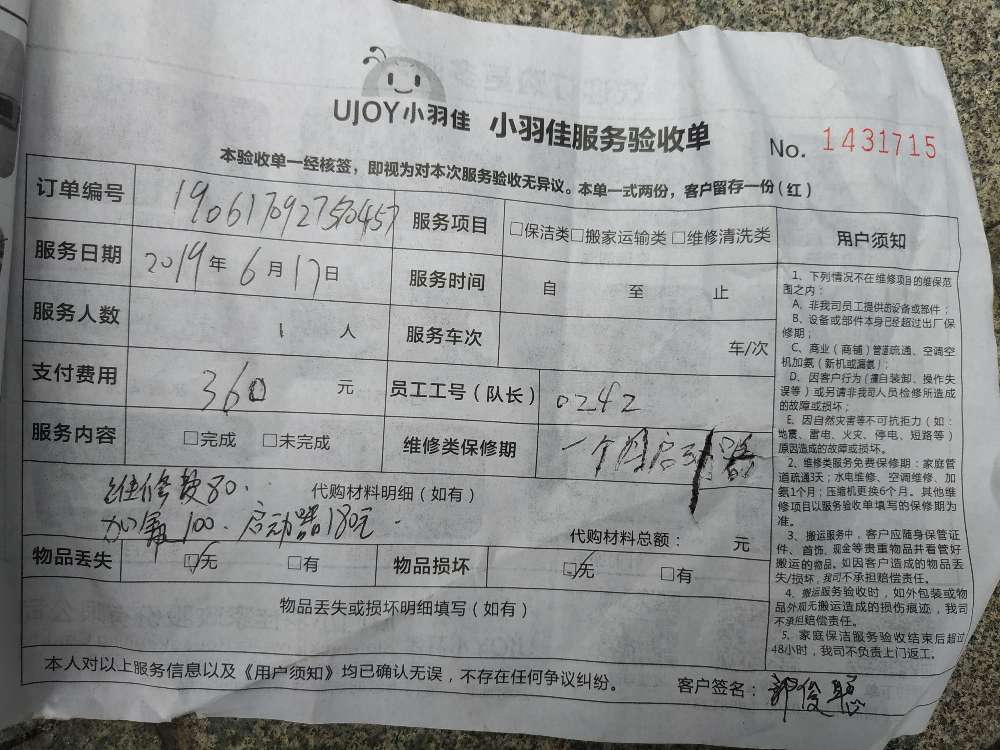 UJOY小羽佳 小羽佳服务验收单 No. 1431715
本验收单一经核签，即视为对本次服务验收无异议。本单一式两份，客户留存一份（红）
订单编号 190617092750457 服务项目 □保洁类□搬家运输类 □维修清洗类
服务日期 2019年6月17日 服务时间 自 至 止
服务人数 1 人 服务车次 车/次
支付费用 360 元 员工工号（队长） 0242
服务内容 □完成 □未完成 维修类保修期 一个月启动器
维修费80. 代购材料明细（如有）
加氟100. 启动器180元.
代购材料总额： 元
物品丢失 ☑无 □有 物品损坏 ☑无 □有
物品丢失或损坏明细填写（如有）
本人对以上服务信息以及《用户须知》均已确认无误，不存在任何争议纠纷。 客户签名：郭俊聪
用户须知
1、下列情况不在维修项目的维保范
围之内：
A、非我司员工提供的设备或部件；
B、设备或部件本身已经超过出厂保
修期；
C、商业（商铺）管道疏通、空调空
机加氨（新机或漏氨）；
D、因客户行为（擅自装卸、操作失
误等）或另请非我司人员检修所造成
的故障或损坏；
E、因自然灾害等不可抗拒力（如：
地震、雷电、火灾、停电、短路等）
原因造成的故障或损坏。
2、维修类服务免费保修期：家庭管
道疏通3天；水电维修、空调维修、加
氨1个月；压缩机更换6个月。其他维
修项目以服务验收单填写的保修期为
准。
3、搬运服务中，客户应随身保管证
件、首饰、现金等贵重物品并看管好
搬运的物品。如因客户造成的物品丢
失/损坏，我司不承担赔偿责任。
4、搬运服务验收时，如外包装或物
品外观无搬运造成的损伤痕迹，我司
不承担赔偿责任。
5、家庭保洁服务验收结束后超过
48小时，我司不负责上门返工。